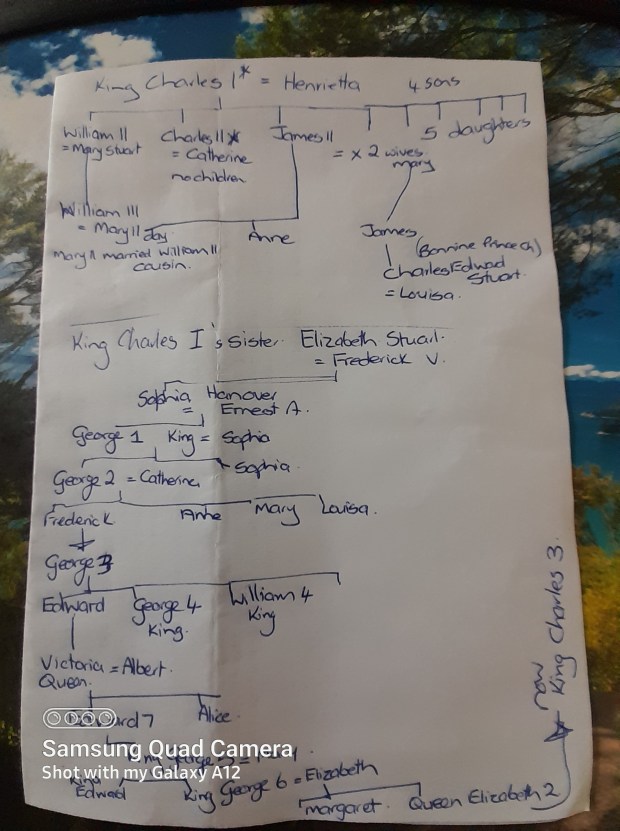 King Charles 1* = Henrietta 4 sons
William II Charles II* James II 5 daughters
= Mary Stuart = Catherine = x 2 wives
no children mary
William III
= Mary II Anne James
Mary II married William II (Bonnine Prince Ch)
cousin. Charles Edwad
Stuart.
= Louisa.
King Charles I's sister. Elizabeth Stuart.
= Frederick V.
Sophia Hanover
= Ernest A.
George 1 King = Sophia
George 2 = Catherina Sophia
Frederick Anne Mary Louisa.
George 3
Edward George 4 William 4
King. King
Victoria = Albert.
Queen.
Edward 7 Alice.
George 5 =
King
Edward King George 6 = Elizabeth
margaret. Queen Elizabeth 2
now
King Charles 3.
Samsung Quad Camera
Shot with my Galaxy A12